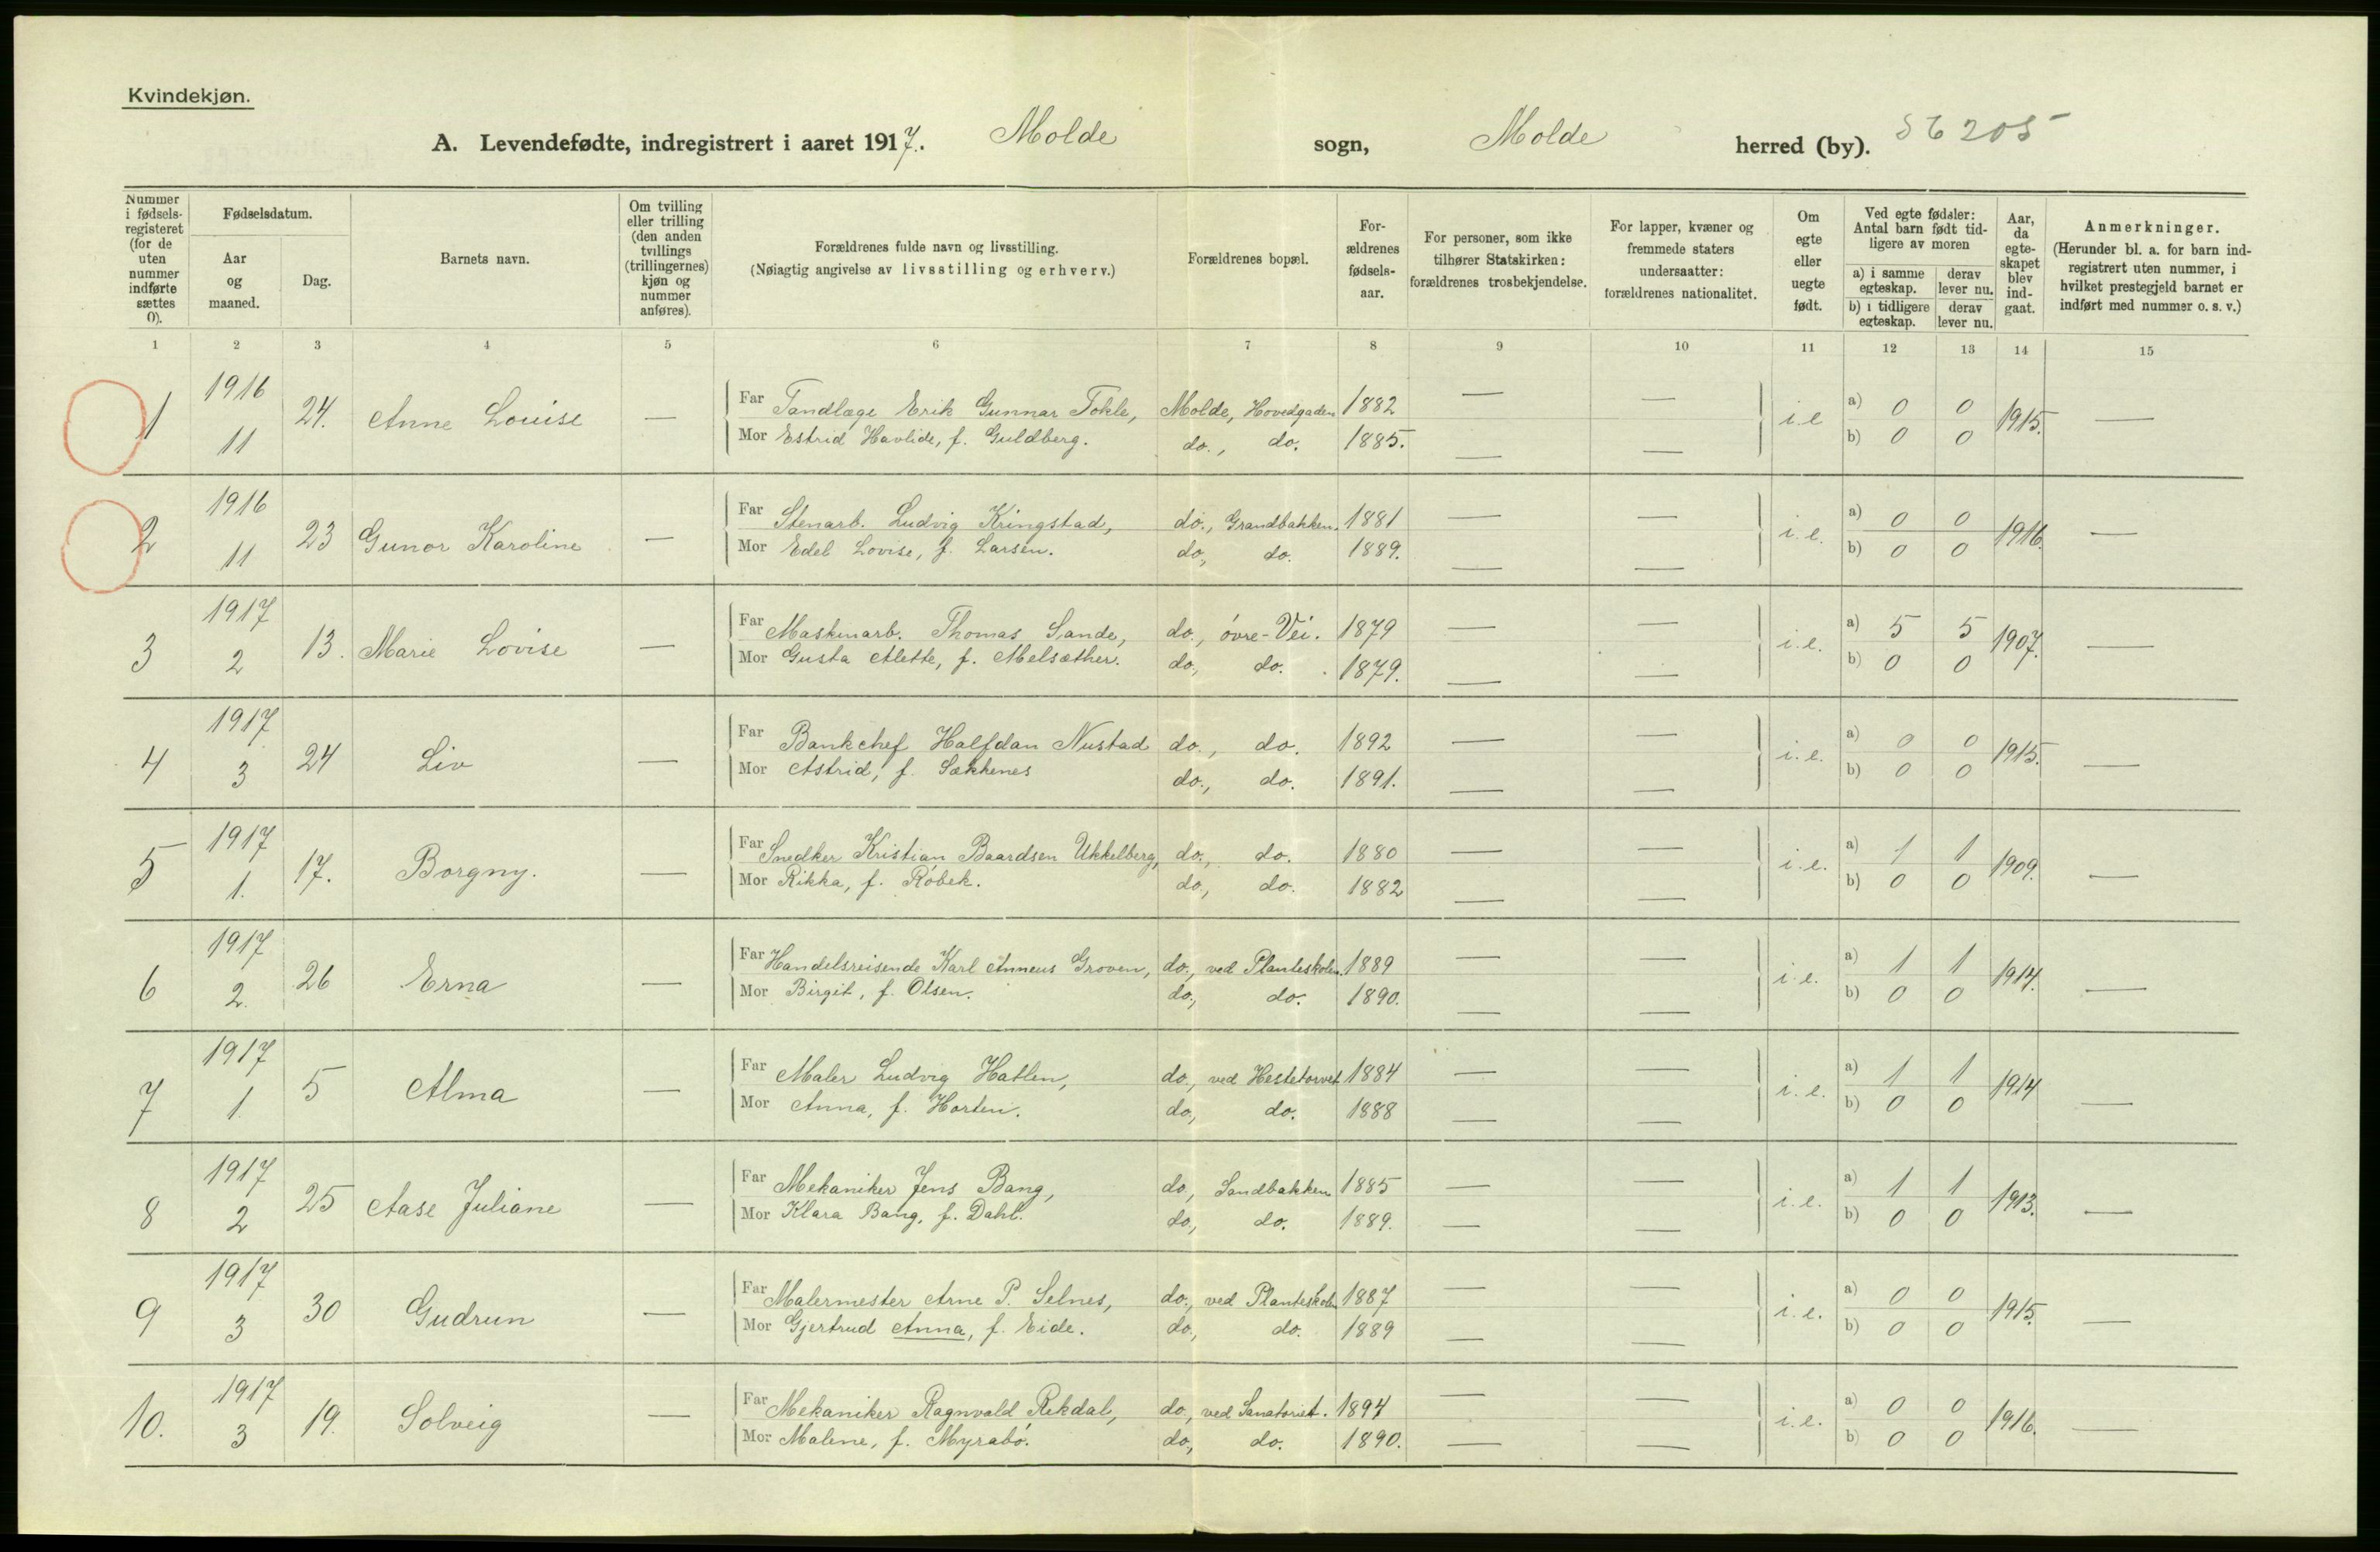 Kvindekjøn.
A. Levendefødte, indregistrert i aaret 1917. Molde sogn, Molde herred (by). S6 205
Nummer i fødsels-registeret (for de uten nummer indførte sættes 0).
Fødselsdatum.
Aar og maaned.
Dag.
Barnets navn.
Om tvilling eller trilling (den anden tvillings (trillingernes) kjøn og nummer anføres).
Forældrenes fulde navn og livsstilling.
(Nøiagtig angivelse av livsstilling og erhverv.)
Forældrenes bopæl.
For-ældrenes fødsels-aar.
For personer, som ikke tilhører Statskirken: forældrenes trosbekjendelse.
For lapper, kvæner og fremmede staters undersaatter: forældrenes nationalitet.
Om egte eller uegte født.
Ved egte fødsler: Antal barn født tid-ligere av moren
a) i samme egteskap. derav lever nu.
b) i tidligere egteskap. derav lever nu.
Aar, da egte-skapet blev ind-gaat.
Anmerkninger.
(Herunder bl. a. for barn ind-registrert uten nummer, i hvilket prestegjeld barnet er indført med nummer o. s. v.)
1 2 3 4 5 6 7 8 9 10 11 12 13 14 15
1 1916 11 24. Anne Louise — Far Tandlæge Erik Gunnar Tokle, Molde, Hovedgaden 1882 — — i.e a) 0 0 1915. —
Mor Estrid Havlide, f. Guldberg. do., do. 1885. — — b) 0 0
2 1916 11 23 Gunor Karoline — Far Stenarb. Ludvig Kringstad, do., Grandbakken. 1881 — — i.e. a) 0 0 1916. —
Mor Edel Lovise, f. Larsen. do, do. 1889. — — b) 0 0
3 1917 2 13. Marie Lovise — Far Maskinarb. Thomas Sande, do., óvre-Vei. 1879 — — i.e. a) 5 5 1907. —
Mor Gusta Alette, f. Melsæther. do., do. 1879. — — b) 0 0
4 1917 3 24 Liv — Far Bankchef Halfdan Nustad do., do. 1892 — — i.e. a) 0 0 1915. —
Mor Astrid, f. Sækkenes do., do. 1891. — — b) 0 0
5 1917 1. 17. Borgny. — Far Snedker Kristian Baardsen Ukkelberg, do., do. 1880 — — i.e. a) 1 1 1909. —
Mor Rikka, f. Róbek. do., do. 1882 — — b) 0 0
6 1917 2. 26 Erna — Far Handelsreisende Karl Anneus Groven, do., ved Planteskolen. 1889 — — i.e. a) 1 1 1914. —
Mor Birgit, f. Olsen. do., do. 1890. — — b) 0 0
7 1917 1. 5 Alma — Far Maler Ludvig Hatlen, do., ved Hestetorvet 1884 — — i.e. a) 1 1 1914 —
Mor Anna, f. Horten. do, do. 1888 — — b) 0 0
8 1917 2 25 Aase Juliane — Far Mekaniker Jens Bang, do, Sandbakken 1885 — — i.e. a) 1 1 1913. —
Mor Klara Bang, f. Dahl. do, do. 1889. — — b) 0 0
9 1917 3 30 Gudrun — Far Malermester Arne P. Selnes, do., ved Planteskolen 1887 — — i.e. a) 0 0 1915. —
Mor Gjertrud Anna, f. Eide. do, do. 1889 — — b) 0 0
10. 1917 3 19. Solveig — Far Mekaniker Ragnvald Rekdal, do, ved Sanatoriet. 1894 — — i.e. a) 0 0 1916. —
Mor Malene, f. Myrabó. do, do. 1890. — — b) 0 0